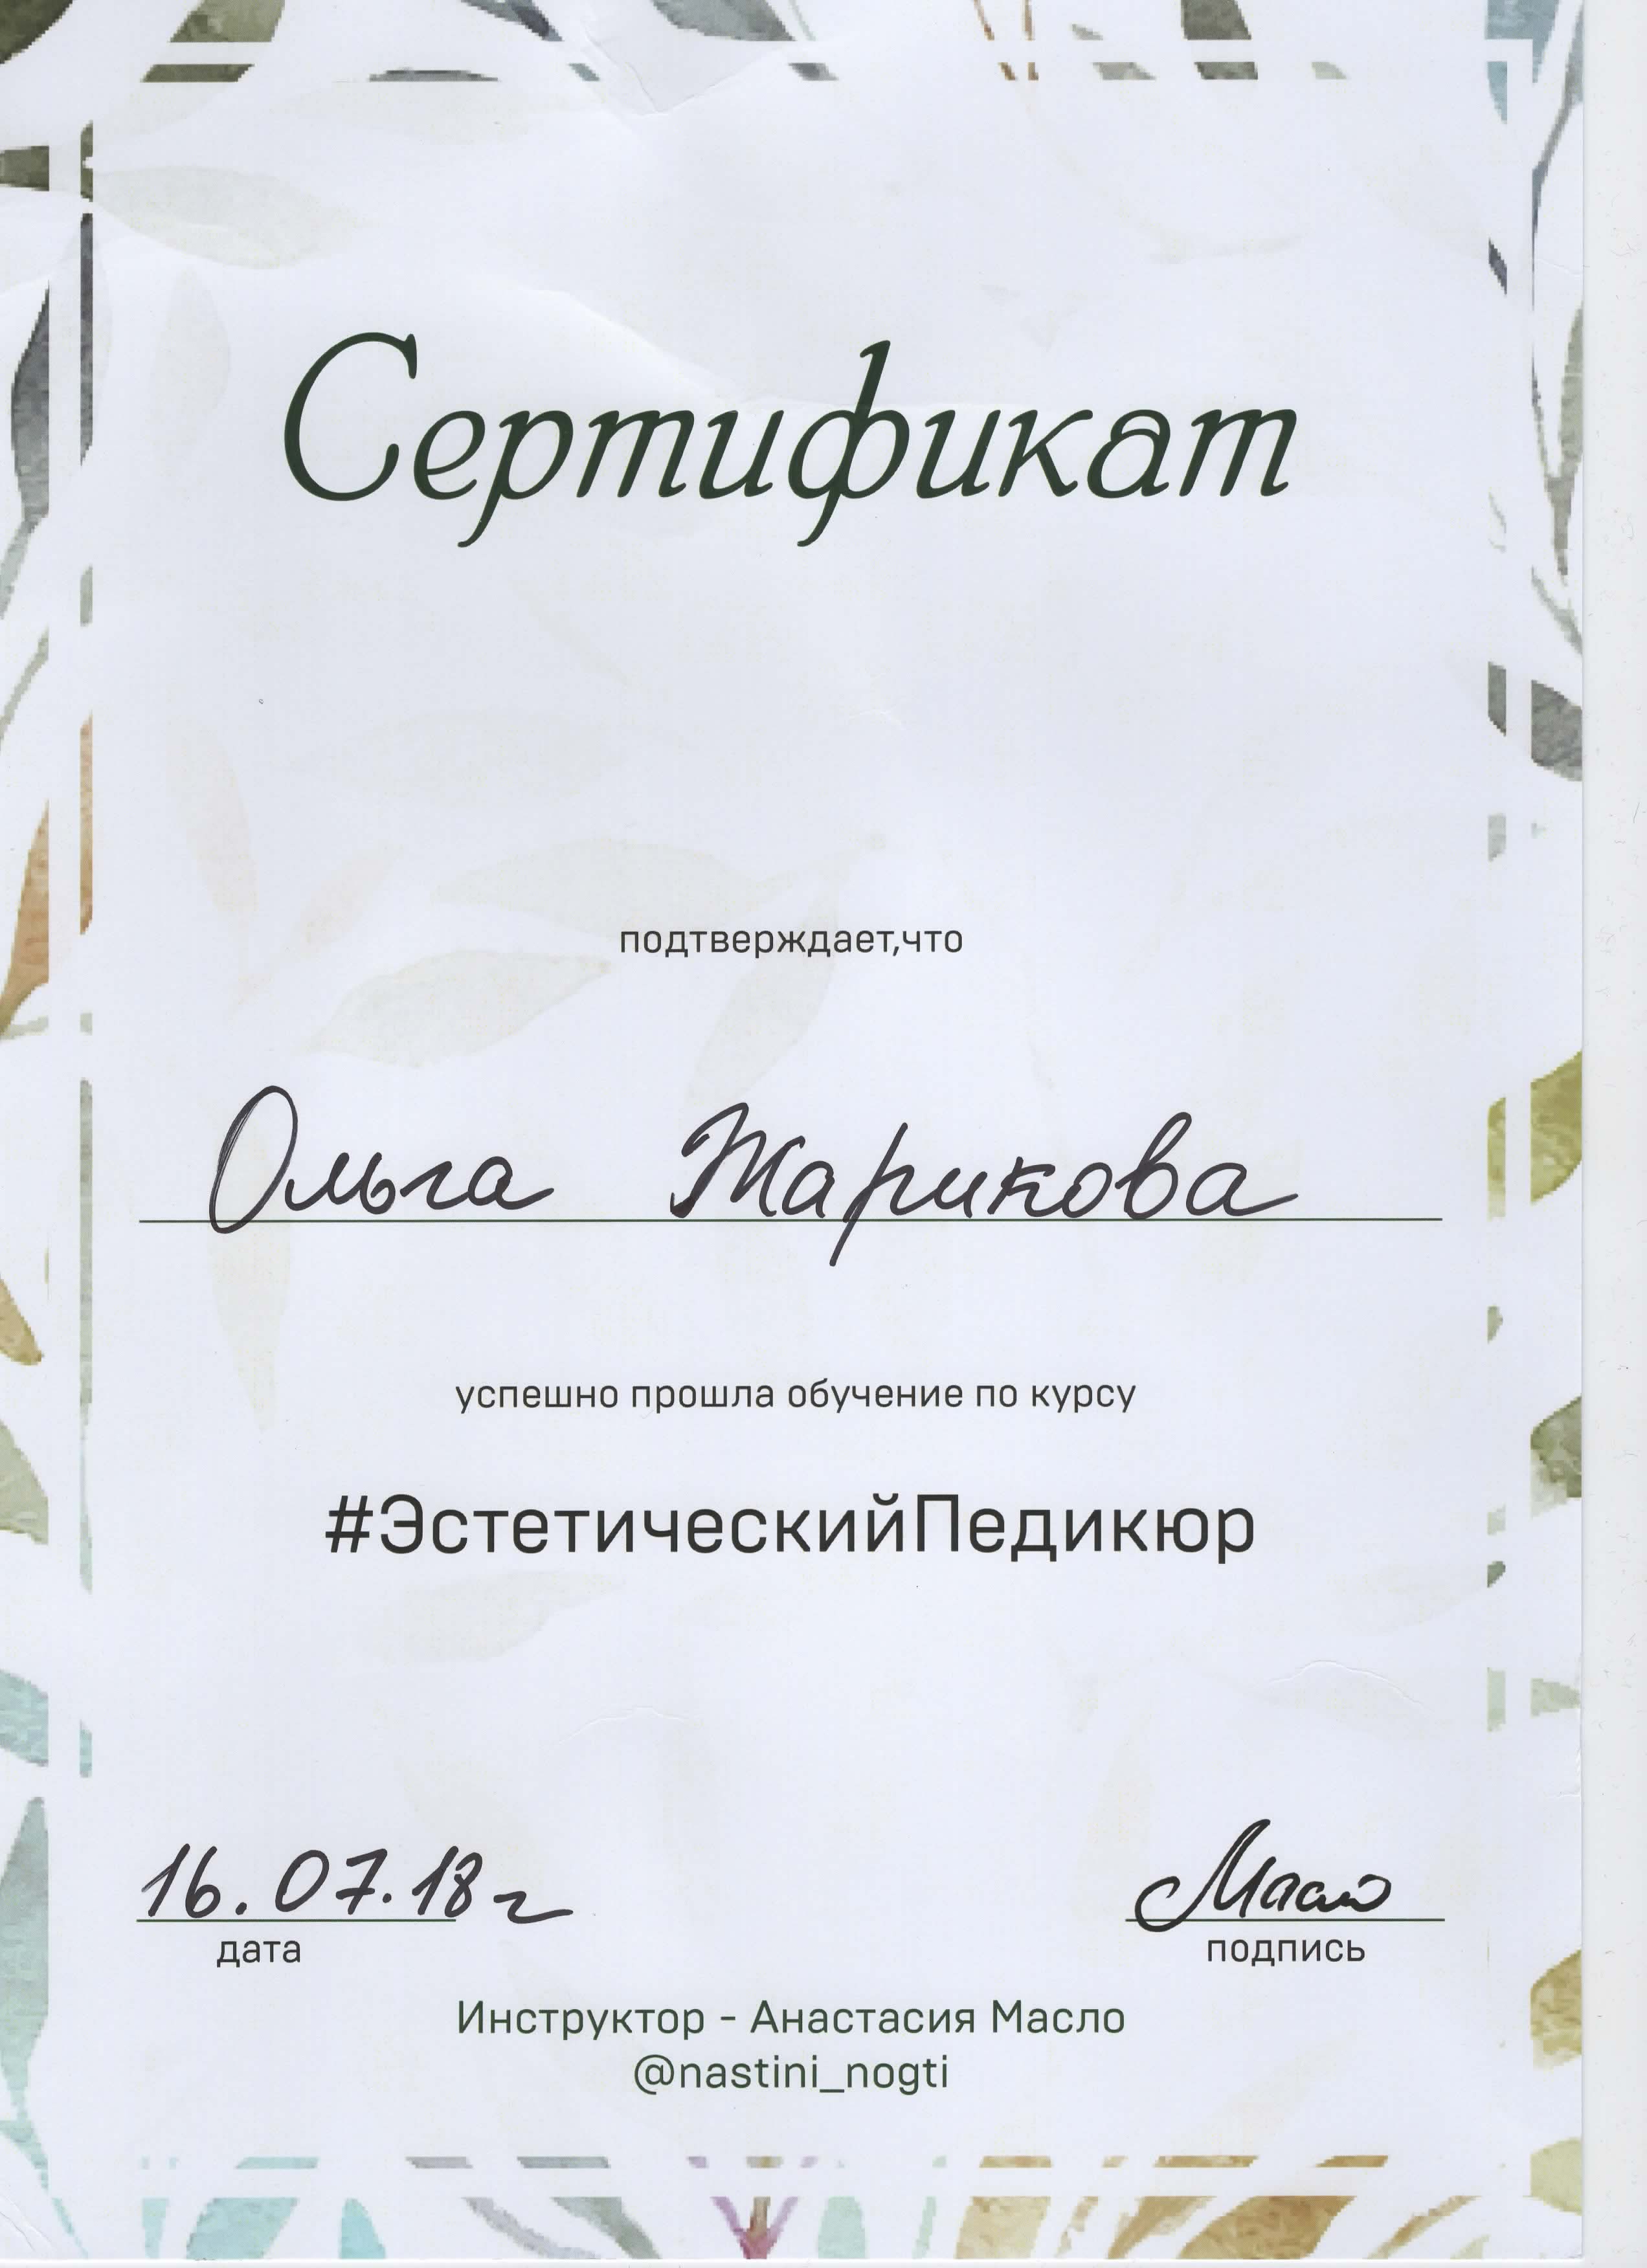 Сертификат
подтверждает,что
Ольга Жарикова
успешно прошла обучение по курсу
#ЭстетическийПедикюр
16.07.18г
Масло
дата
подпись
Инструктор - Анастасия Масло
@nastini_nogti